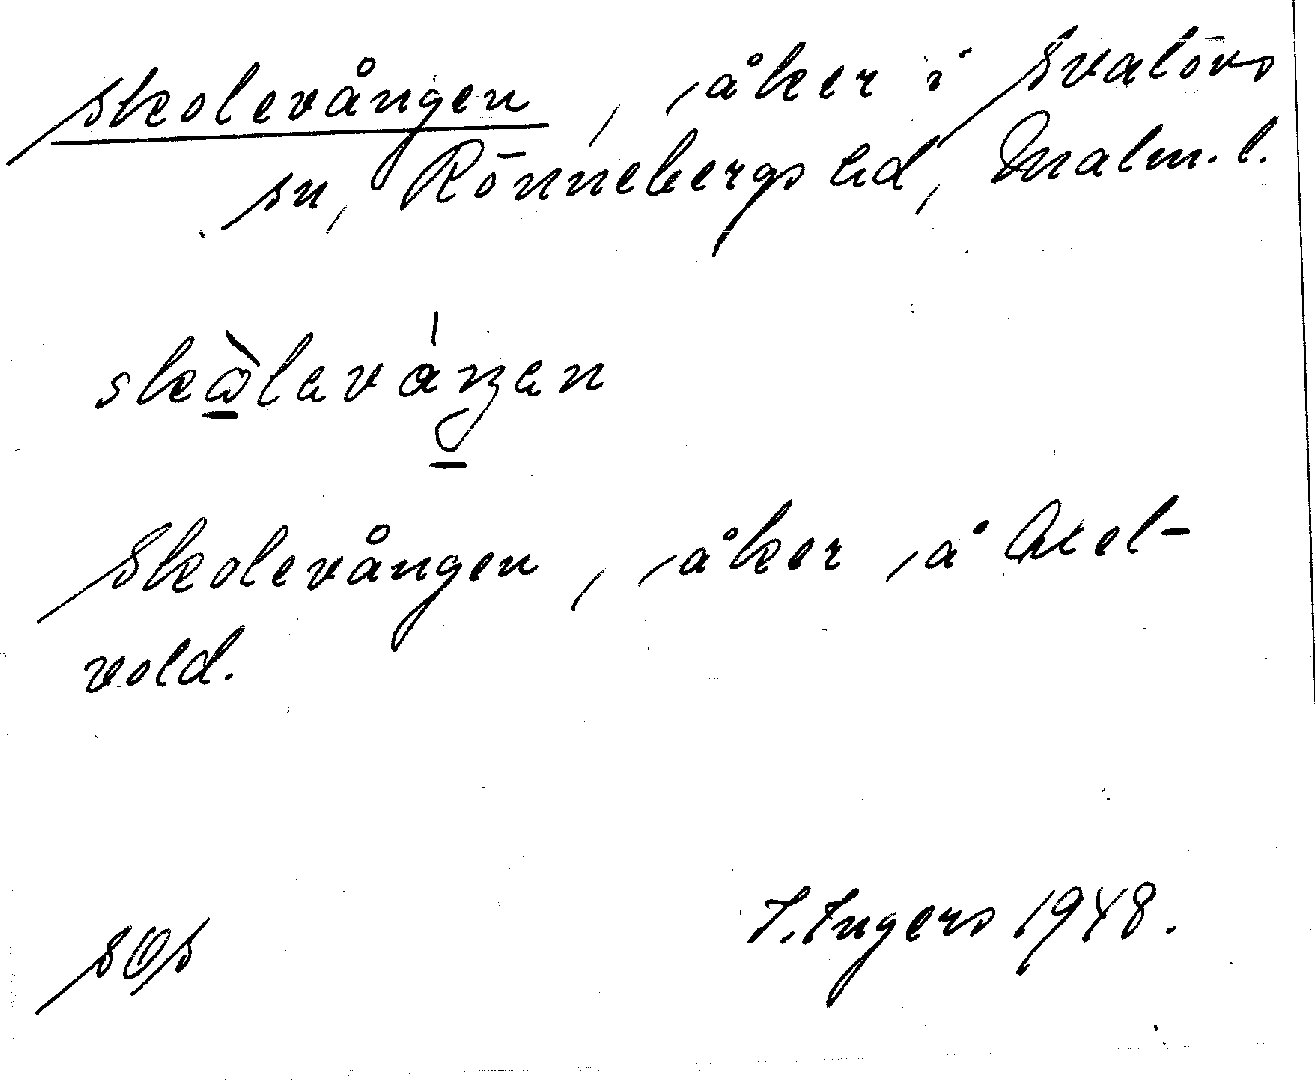 Skolevången, åker i Svalövs
sn, Rönnebergs hd, Malm. l.
Skolevången, åker å Axel-
vold.
I. Ingers 1948.